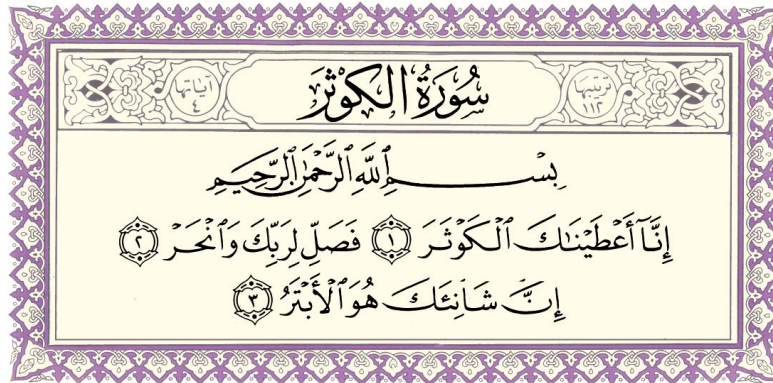 ترتيبها ١١٢
سُورَةُ الكَوْثَرَ
آيَاتها ٤
بِسْمِ ٱللَّهِ ٱلرَّحْمَٰنِ ٱلرَّحِيمِ
إِنَّآ أَعْطَيْنَٰكَ ٱلْكَوْثَرَ ١ فَصَلِّ لِرَبِّكَ وَٱنْحَرْ ٢
إِنَّ شَانِئَكَ هُوَ ٱلْأَبْتَرُ ٣